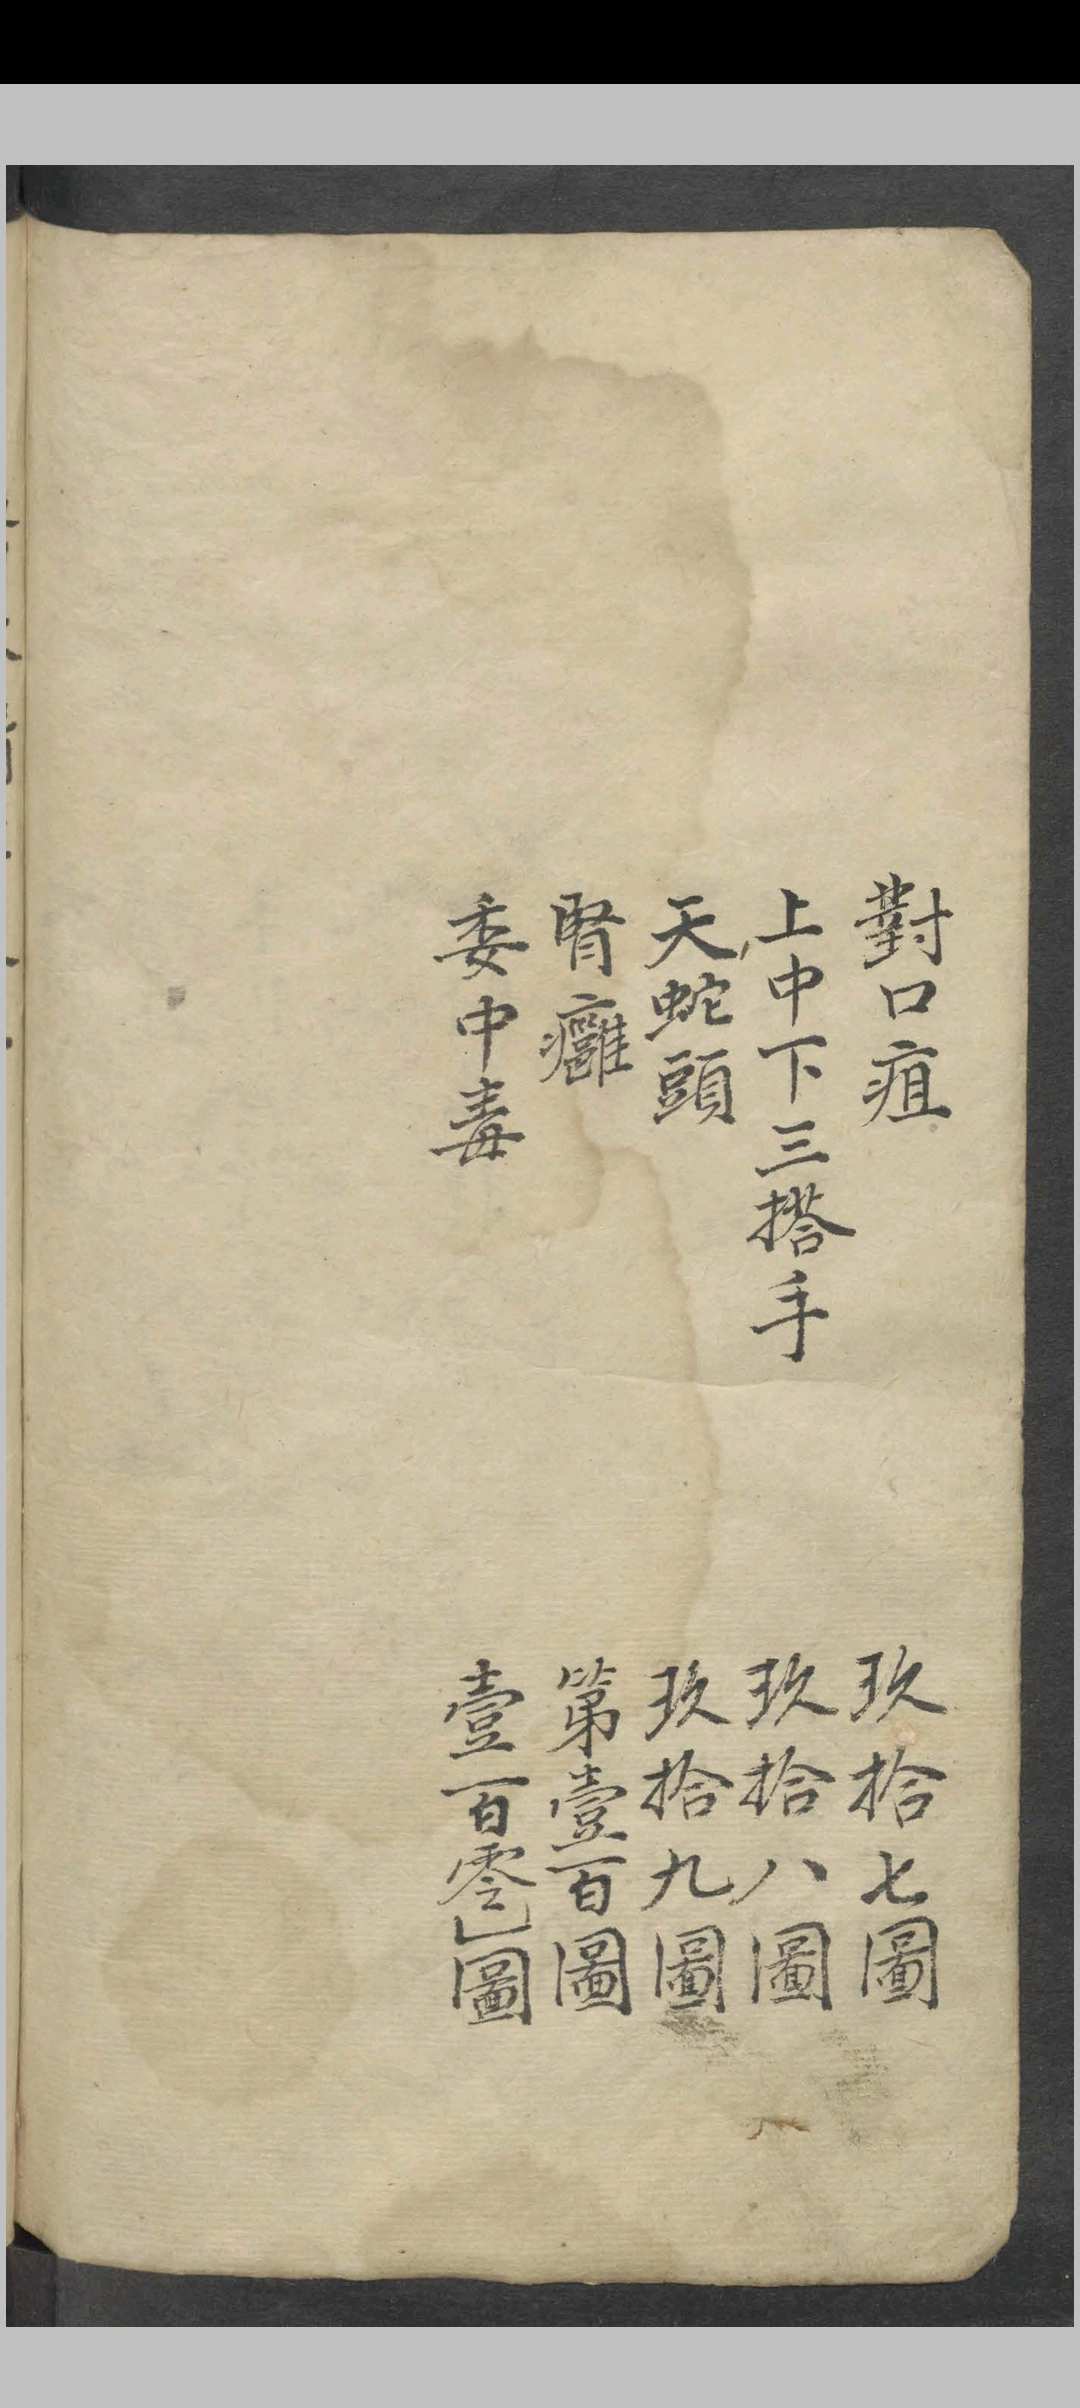 對口疽　玖拾七圖
上中下三搭手　玖拾八圖
天蛇頭　玖拾九圖
腎癰　第壹百圖
委中毒　壹百零一圖